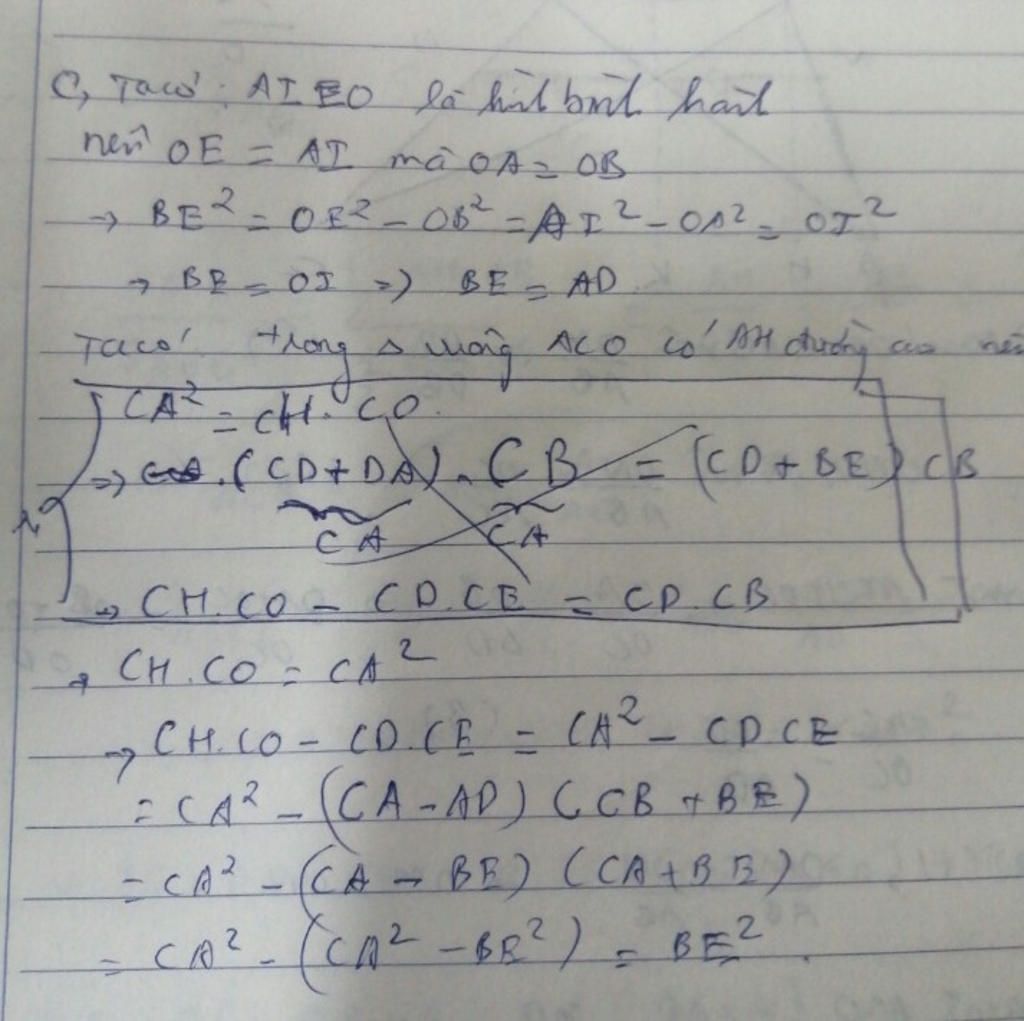 C, Ta có: AIEO là hình bình hành
nên OE = AI mà OA = OB
→ BE² = OE² - OB² = AI² - OA² = OI²
→ BE = OI => BE = AD.
Ta có trong Δ vuông ACO có AH đường cao nên
CA² = CH. CO.
=> (CD+DA). CB = (CD+BE) CB
CA CA
→ CH.CO - CD.CE = CD.CB
→ CH.CO = CA²
→ CH.CO - CD.CE = CA² - CD.CE
= CA² - (CA-AD) (CB+BE)
= CA² - (CA - BE) (CA+BE)
= CA² - (CA² - BE²) = BE².